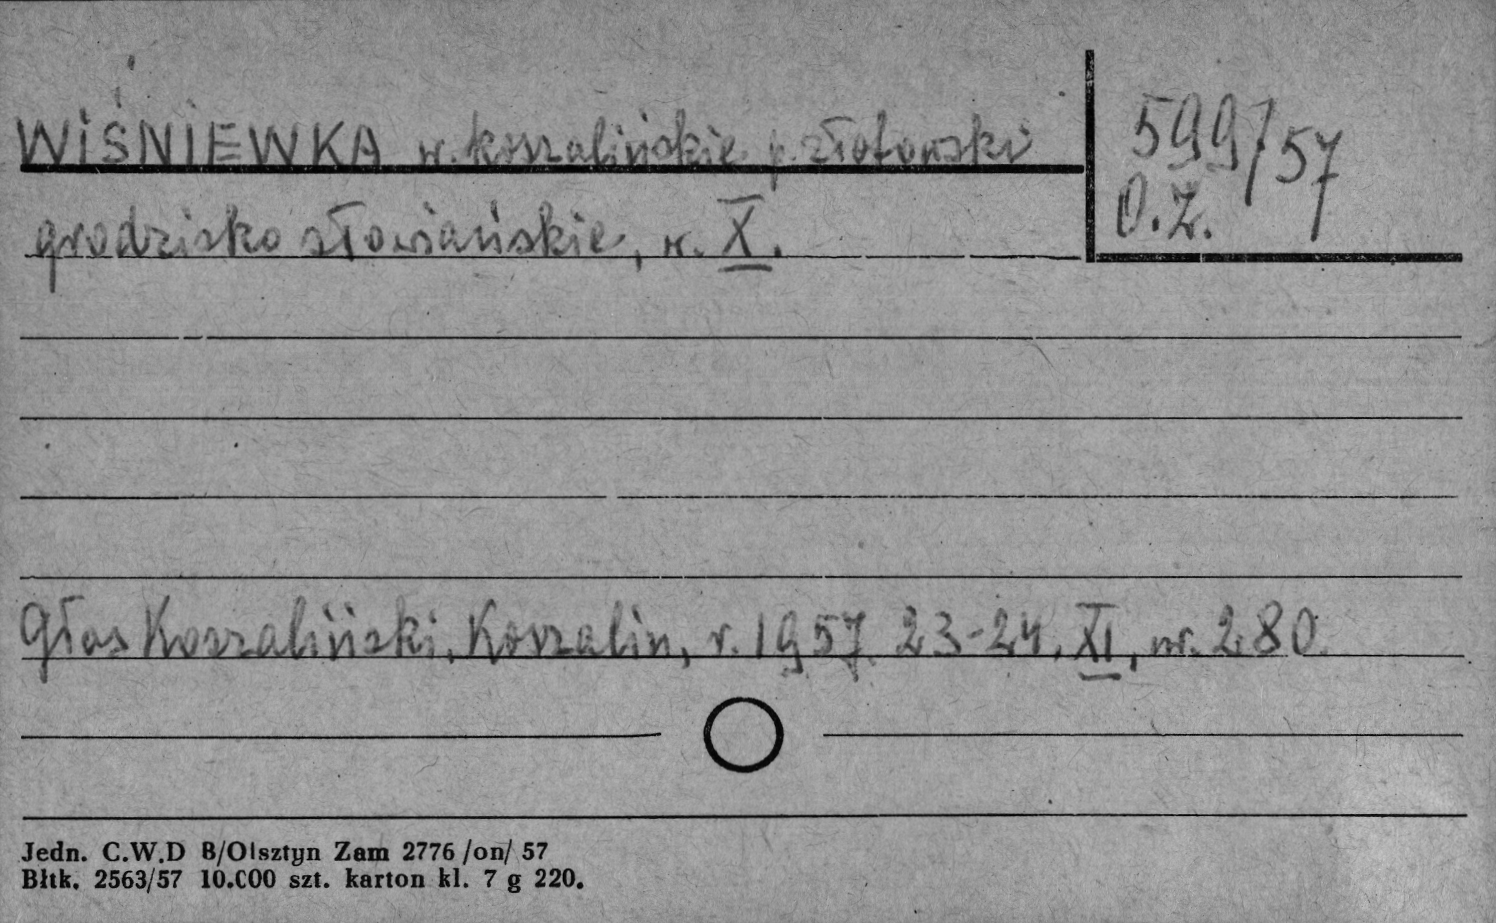 WIŚNIEWKA w. koszalińskie p. złotowski
599/57
O.Z.
grodzisko słowiańskie, w. X.
Głos Koszaliński, Koszalin, r. 1957. 23-24. XI, nr. 280.
Jedn. C.W.D B/Olsztyn Zam 2776 /on/ 57
Błtk. 2563/57 10.C00 szt. karton kl. 7 g 220.